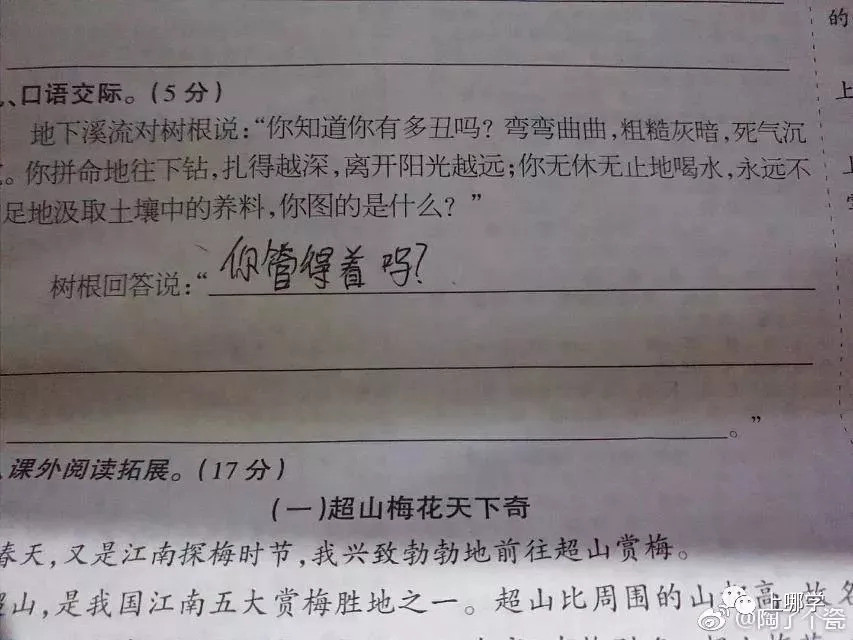 的
、口语交际。(5分)
上
地下溪流对树根说:“你知道你有多丑吗? 弯弯曲曲,粗糙灰暗,死气沉
。你拼命地往下钻,扎得越深,离开阳光越远;你无休无止地喝水,永远不
上
足地汲取土壤中的养料,你图的是什么? ”
树根回答说:“你管得着吗?
。”
课外阅读拓展。(17分)
(一)超山梅花天下奇
春天,又是江南探梅时节,我兴致勃勃地前往超山赏梅。
超山,是我国江南五大赏梅胜地之一。超山比周围的山都高,故名
上哪学
@陶了个瓷